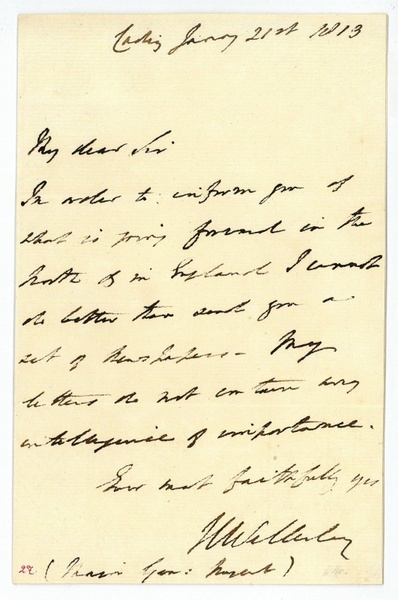 Cadiz Janry 21st 1813
My dear Sir
In order to inform you of
what is going forward in the
North & in England I cannot
do better than send you a
set of Newspapers - My
letters do not contain any
intelligence of importance.
Ever most faithfully yrs
HWellesley
27 (Major Gen: Nugent)